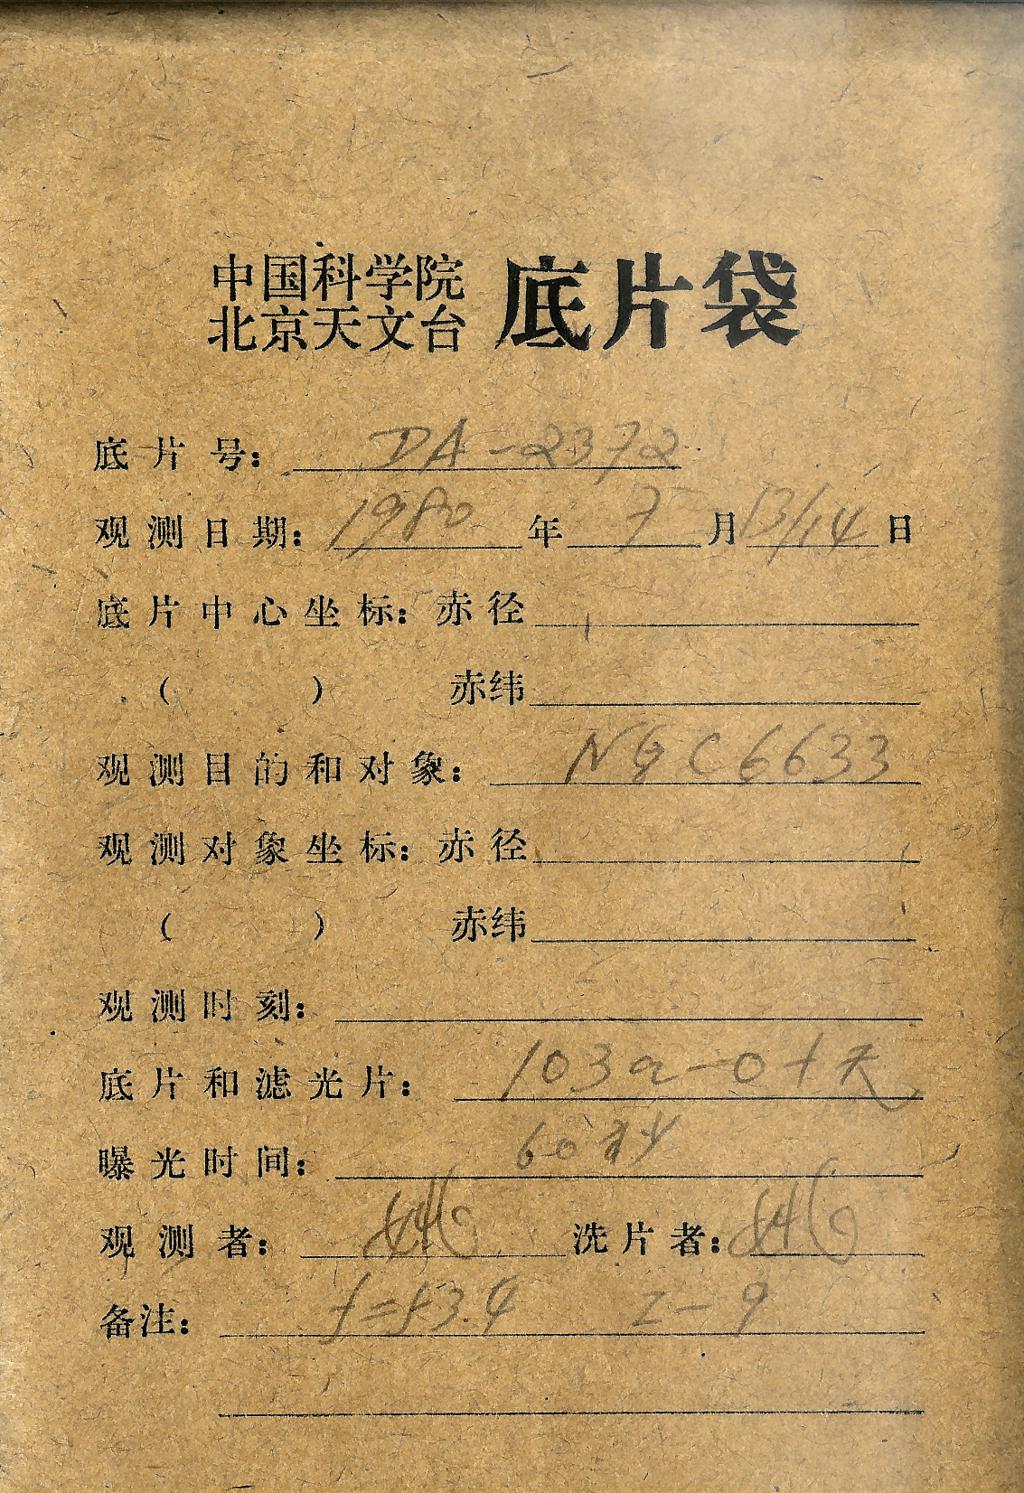 中国科学院
北京天文台 底片袋
底片号: DA-2372
观测日期: 1980年7月13/14日
底片中心坐标: 赤径
( ) 赤纬
观测目的和对象: NGC6633
观测对象坐标: 赤径
( ) 赤纬
观测时刻:
底片和滤光片: 103a-O+天
曝光时间: 60秒
观测者: 洗片者:
备注: f=53.4 Z-9